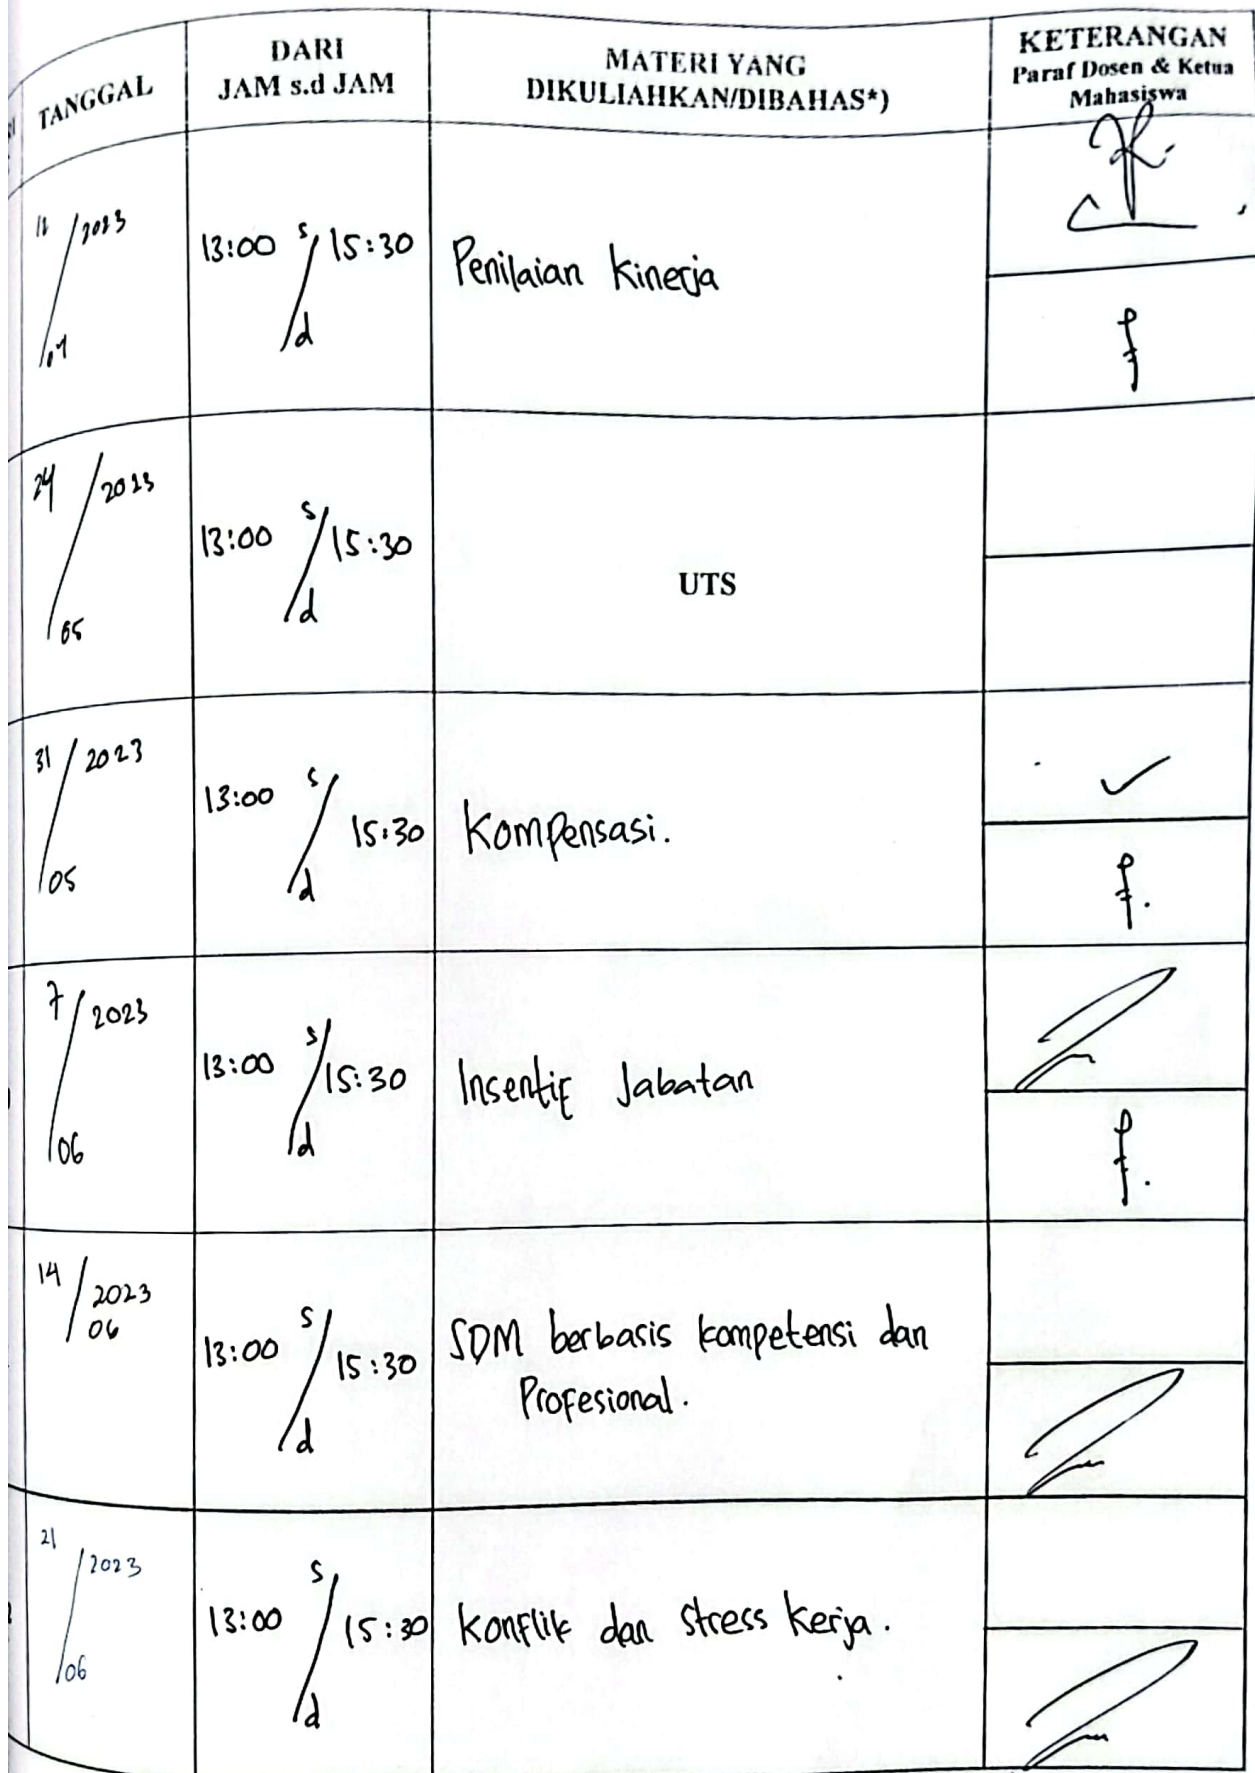 TANGGAL
DARI
JAM s.d JAM
MATERI YANG
DIKULIAHKAN/DIBAHAS*)
KETERANGAN
Paraf Dosen & Ketua
Mahasiswa
/ 2023
13:00 s/d 15:30
Penilaian Kinerja
24 / 2023
05
13:00 s/d 15:30
UTS
31 / 2023
05
13:00 s/d 15:30
Kompensasi.
7 / 2023
06
13:00 s/d 15:30
Insentif Jabatan
14 / 2023
06
13:00 s/d 15:30
SDM berbasis kompetensi dan
Profesional.
21 / 2023
06
13:00 s/d 15:30
Konflik dan stress kerja.